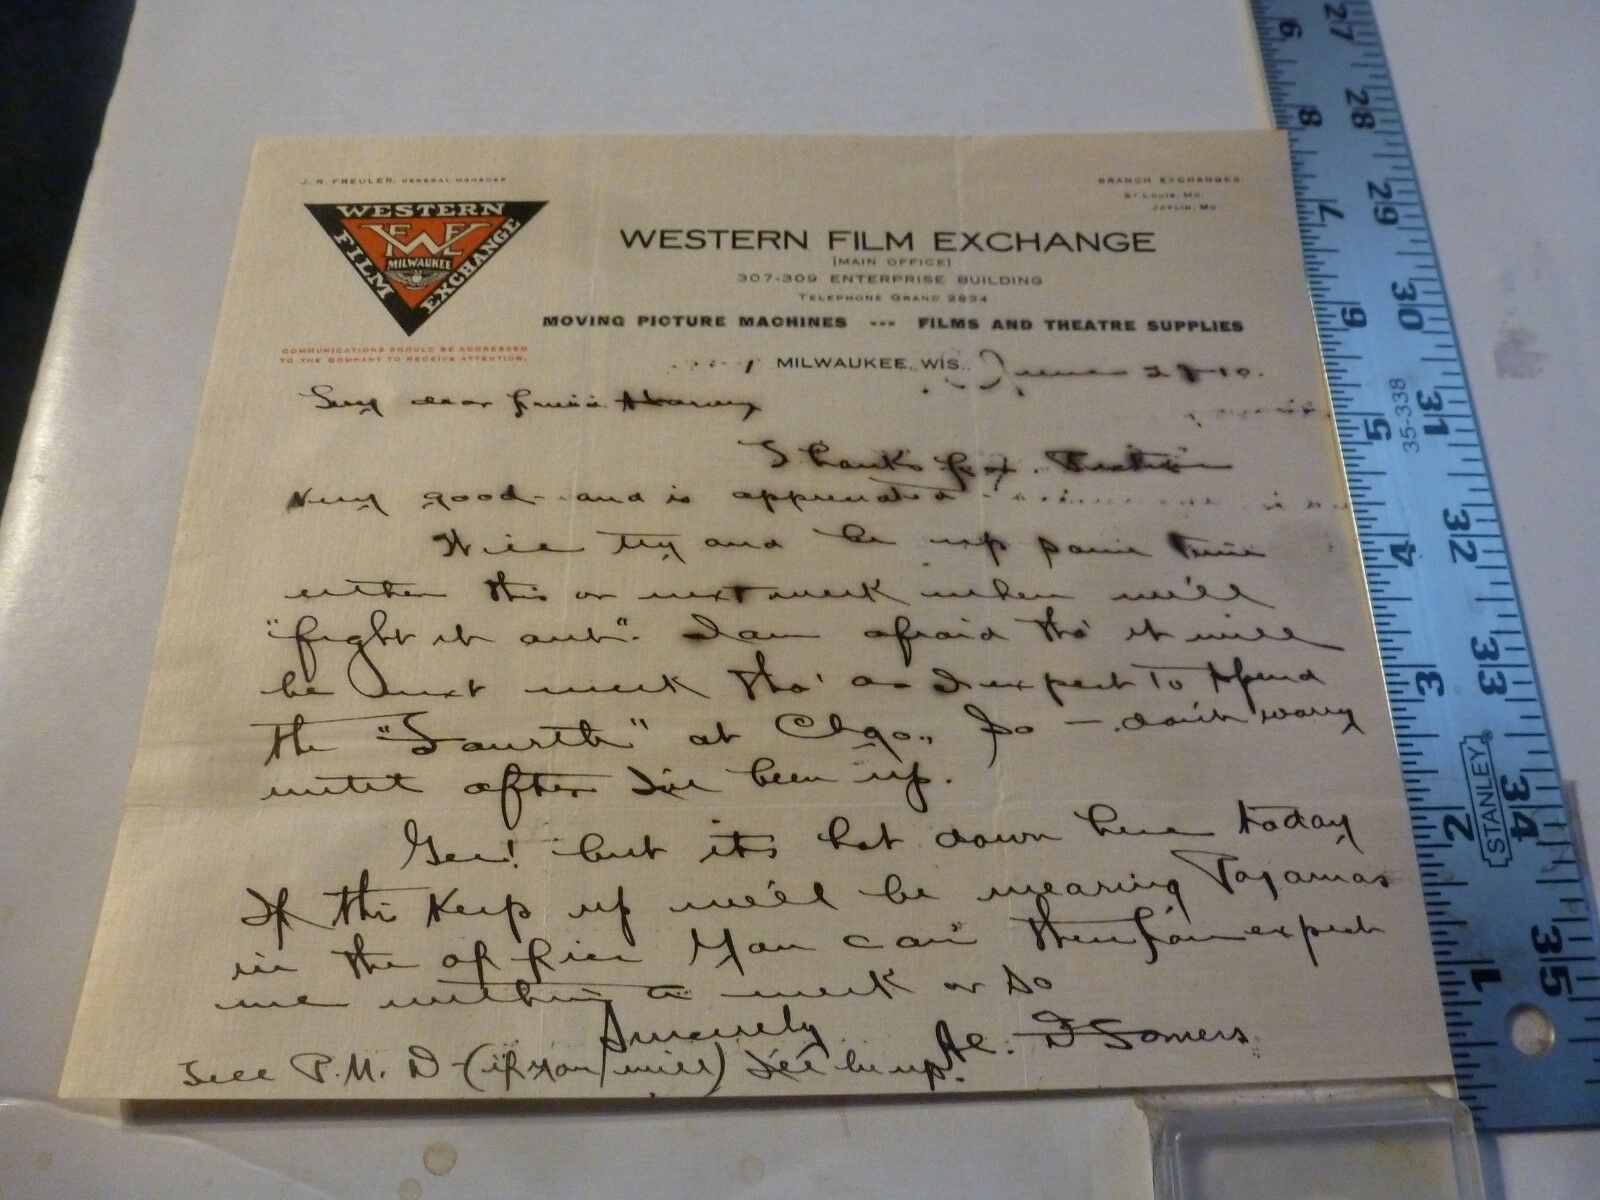 J. R. FREULER, GENERAL MANAGER
BRANCH EXCHANGES:
ST. LOUIS, MO.
JOPLIN, MO.
WESTERN FILM EXCHANGE
WFE
MILWAUKEE
WESTERN FILM EXCHANGE
(MAIN OFFICE)
307-309 ENTERPRISE BUILDING
TELEPHONE GRAND 2634
MOVING PICTURE MACHINES --- FILMS AND THEATRE SUPPLIES
COMMUNICATIONS SHOULD BE ADDRESSED
TO THE COMPANY TO RECEIVE ATTENTION.
MILWAUKEE, WIS., June 28 10.
dear
Thanks for
Very good - and is appreciated
Will try and be up some time
either this or next week when we'll
"fight it out". I am afraid tho' it will
be next week tho' as I expect to spend
the "Fourth" at Chgo., So - don't worry
until after I've been up.
Gee! but it's hot down here today
If this keep up we'll be wearing Pajamas
in the office You can therefore expect
me within a week or so
Sincerely
Al. D Somers
Tell P.M. D - (if you will) I'll be up.
6 27
8 28
7 29
6 30
5 31
35-338
4 32
3 33
2 34
STANLEY®
1 35